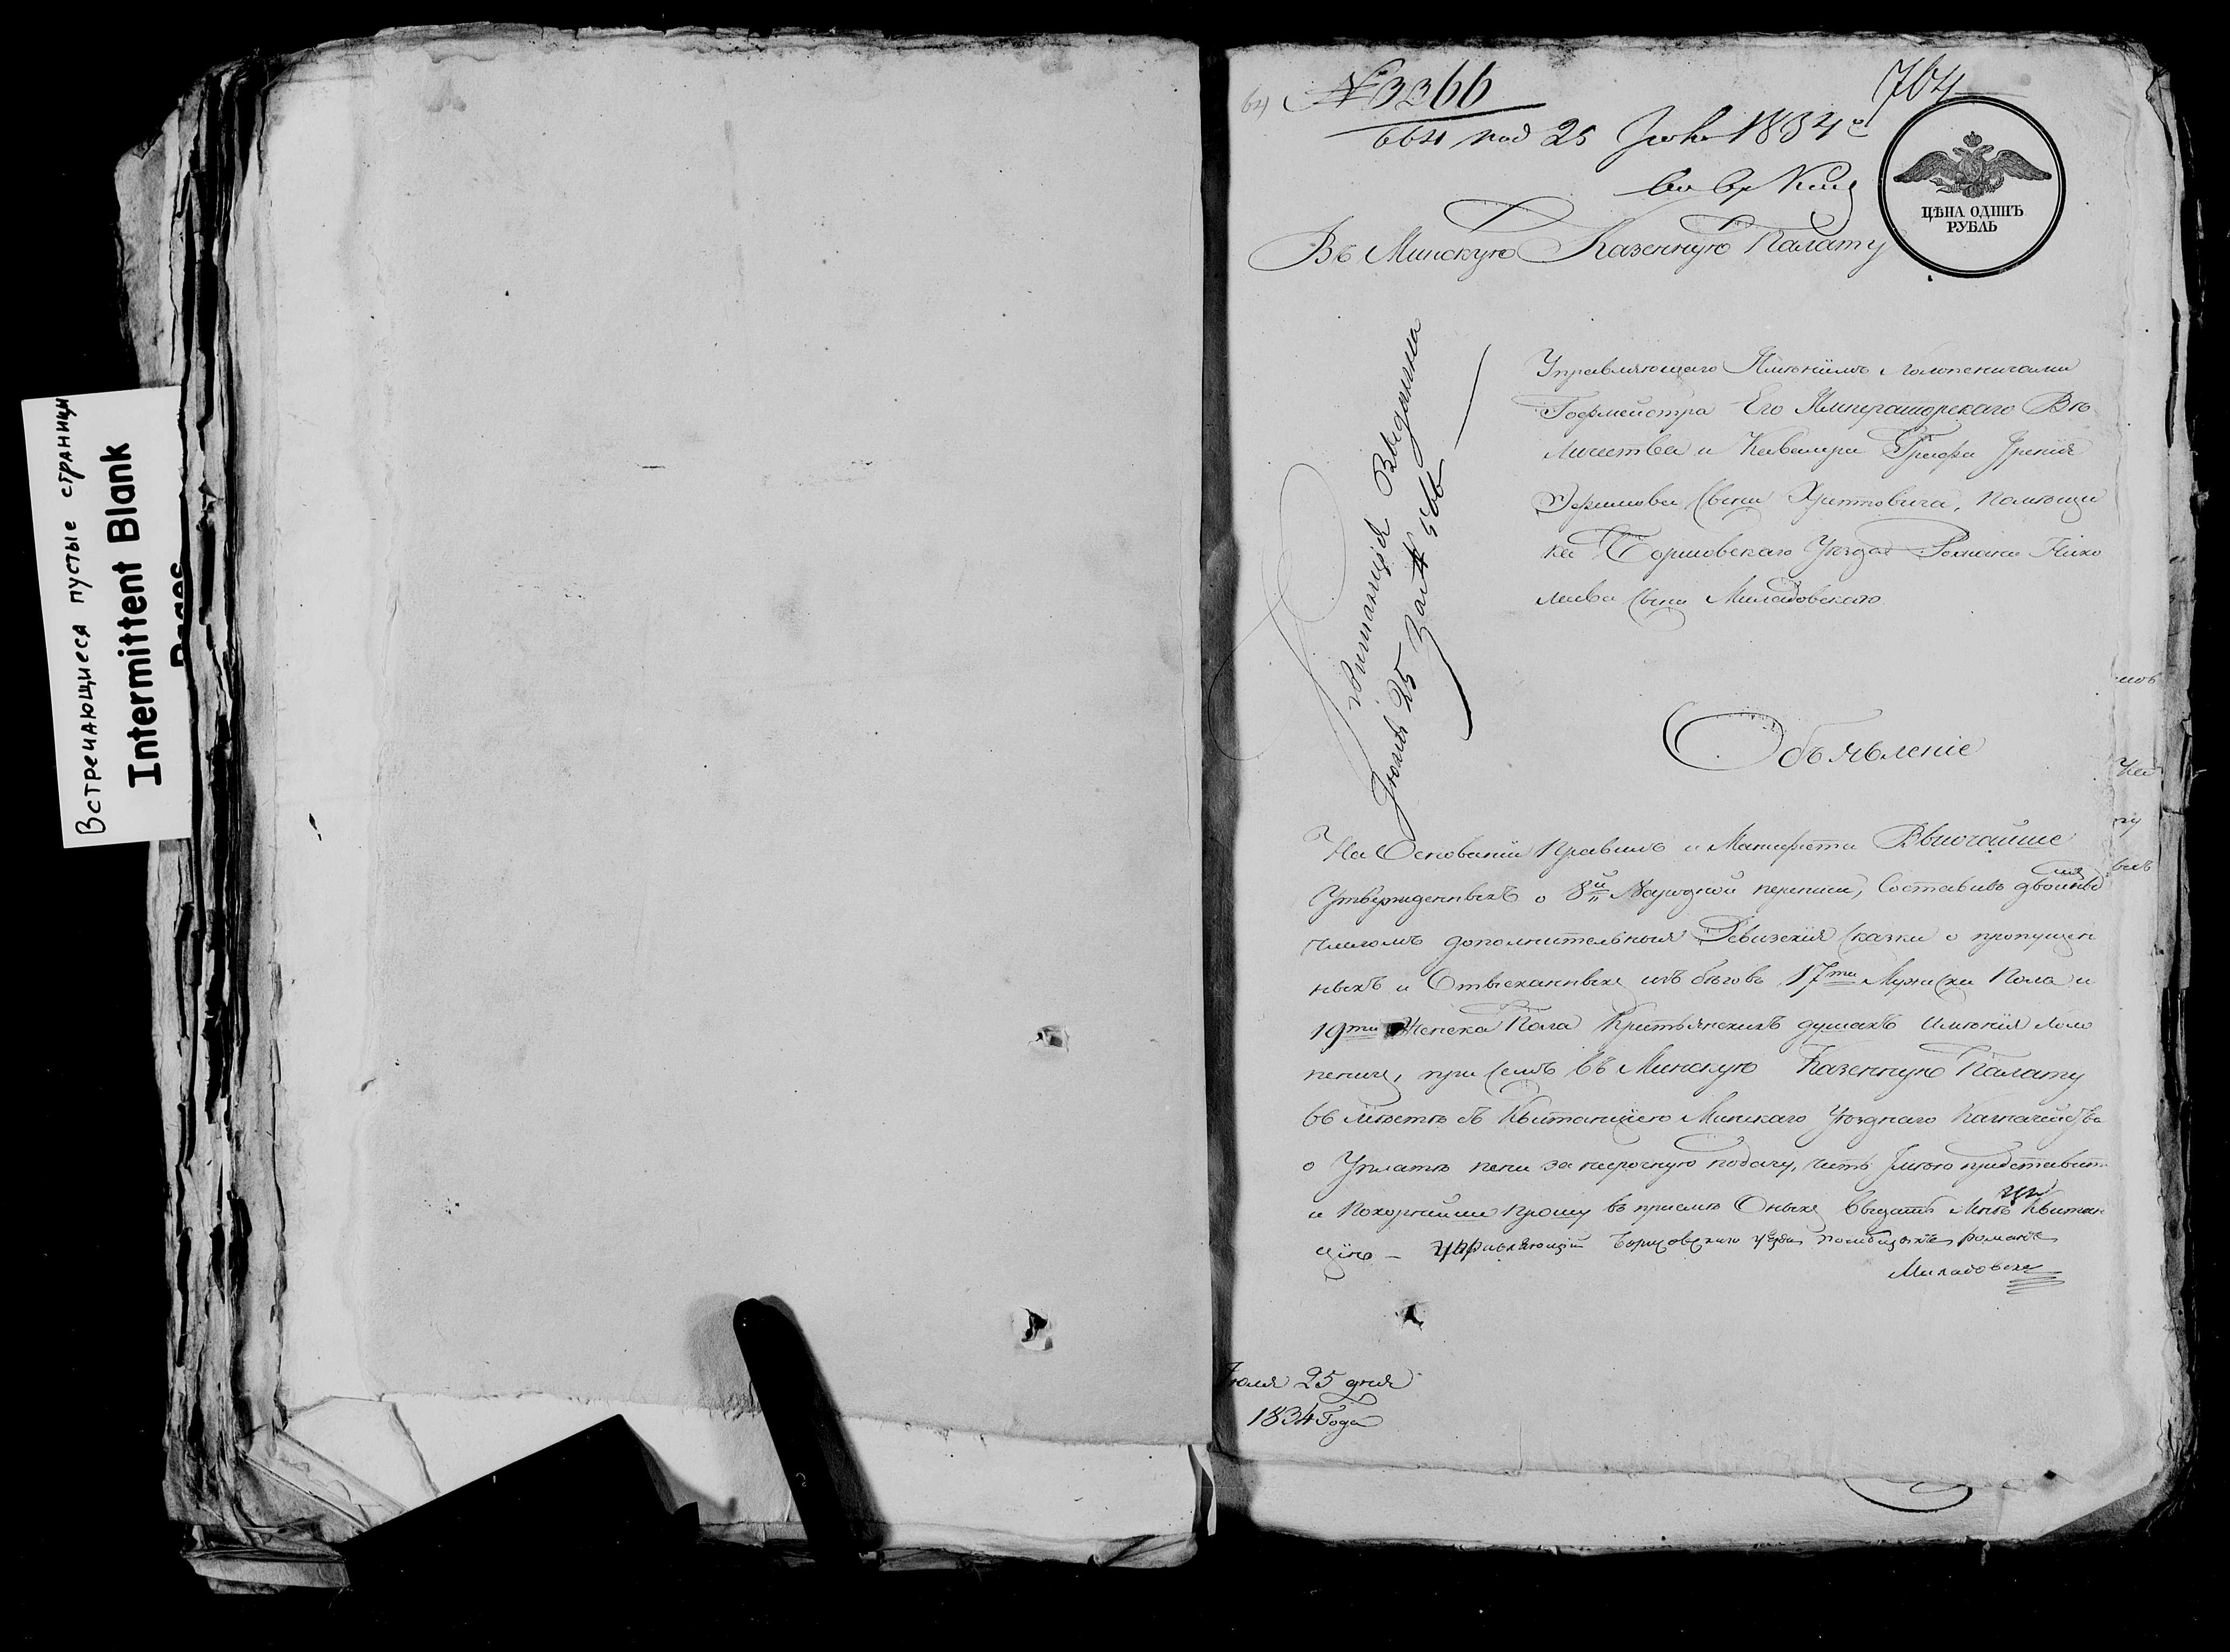 Встречающиеся пустые страницы
Intermittent Blank
Pages
64
№ 3366
664 под 25 Июля 1834 г
704
ЦѢНА ОДИНЪ
РУБЛЬ
Въ Минскую Казенную Палату
Управляющаго Имѣніимъ Молопеничами
Гофмейстра Его Императорскаго Вѣ
личества и Кавалера Графа Иренія
Ефимова сына Хрептовича, помѣщи
ка Борисовскаго Уѣзда Романа
сына Миладовскаго
Квитанція Выданна
Іюля 25 За № 566
Объявленіе
На Основаніи Правилъ и Манифеста Высочайше
Утвержденныхъ о 8й Народной переписи, Составивъ двойнымъ
числомъ дополнительныя Ревизскія сказки о пропущен
ныхъ и Отысканныхъ изъ бѣговъ 17ти Мужска Пола и
19ти Женска Пола Крестьянскихъ душахъ Имѣнія Моло
пеничъ, при семъ въ Минскую Казенную Палату
вмѣстѣ съ Квитанціею Минскаго Уѣзднаго Казначейства
о Уплатѣ пени за несрочную подачу, честь Имѣю представить
и Покорнѣйше Прошу въ пріемѣ Оныхъ Выдать Мнѣ Квитан
цію — Управляющій Борисовскаго уѣзда помѣщикъ Романъ
Миладовски
Іюля 25 дня
1834 Года